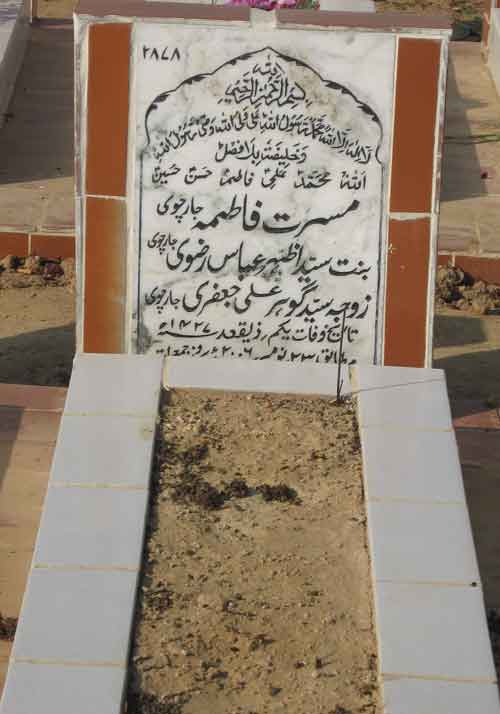 ۲۸۷۸
بسم اللہ الرحمن الرحیم
لا الہ الا اللہ محمد رسول اللہ علی ولی اللہ وصی رسول اللہ
وخلیفتہ بلا فصل
اللہ محمد علی فاطمہ حسن حسین
مسرت فاطمہ جارچوی
بنت سید اظہر عباس رضوی جارچوی
زوجہ سید گوہر علی جعفری جارچوی
تاریخ وفات یکم ذیقعد ۱۴۲۷ھ
مطابق ۲۳ نومبر ۲۰۰۶ء روز جمعرات